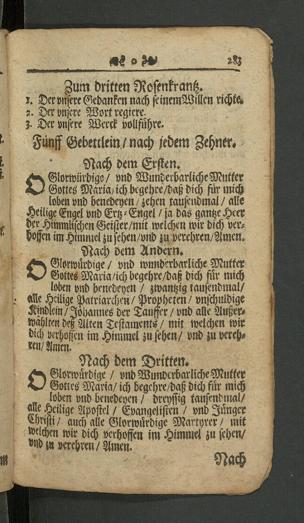 o 283
Zum dritten Rosenkrantz.
1. Der unsere Gedanken nach seinem Willen richte.
2. Der vnsere Wort regiere.
3. Der vnsere Werck vollführe.
Fünff Gebettlein / nach jedem Zehner.
Nach dem Ersten.
O Glorwürdigo / und Wunderbarliche Mutter
Gottes Maria / ich begehre / daß dich für mich
loben und benedeyen / zehen tausendmal / alle
Heilige Engel und Ertz-Engel / ja das gantze Heer
der Himmlischen Geister / mit welchen wir dich ver-
hoffen im Himmel zu sehen / und zu verehren / Amen.
Nach dem Andern.
O Glorwürdige / und wunderbarliche Mutter
Gottes Maria / ich begehre / daß dich für mich
loben und benedeyen / zwantzig tausendmal /
alle Heilige Patriarchen / Propheten / vnschuldige
Kindlein / Johannes der Tauffer / und alle Außer-
wählten deß Alten Testaments / mit welchen wir
dich verhoffen im Himmel zu sehen / und zu vereh-
ren / Amen.
Nach dem Dritten.
O Glorwürdige / und Wunderbarliche Mutter
Gottes Maria / ich begehre / daß dich für mich
loben und benedeyen / dreyssig tausendmal /
alle Heilige Apostel / Evangelisten / und Jünger
Christi / auch alle Glorwürdige Martyrer / mit
welchen wir dich verhoffen im Himmel zu sehen /
vnd zu verehren / Amen.
Nach